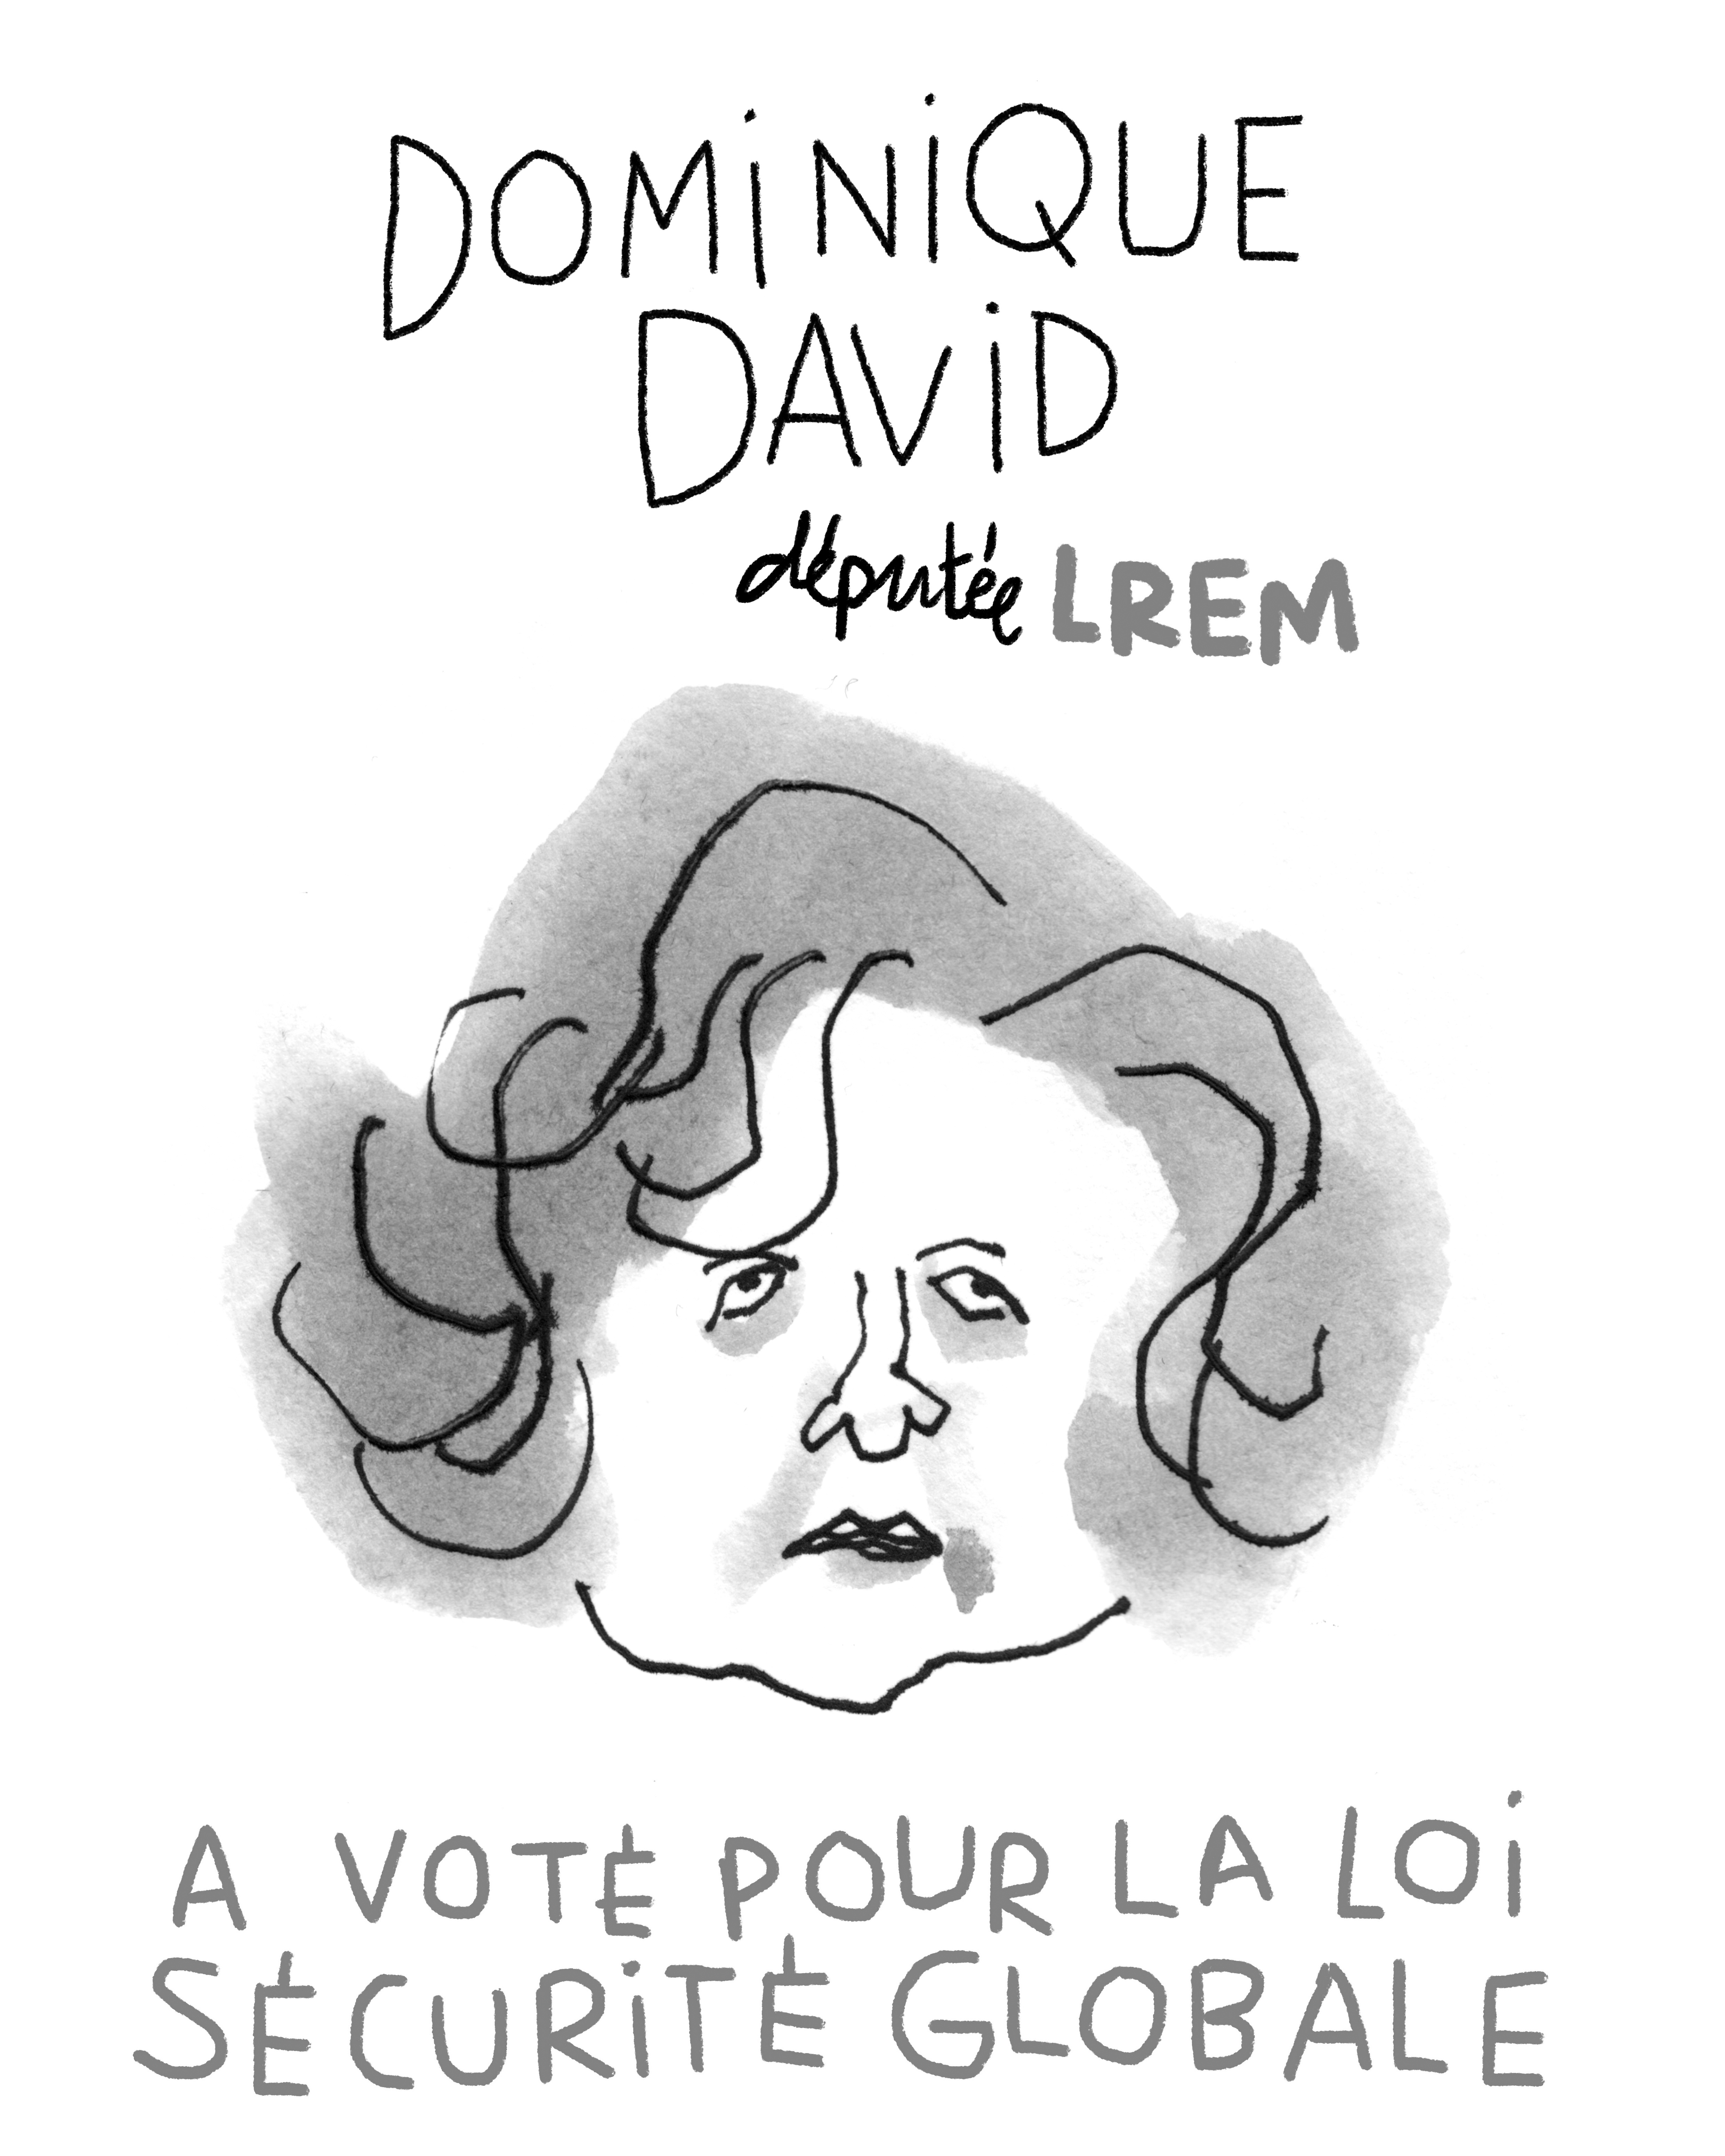 DOMiNiQUE
DAViD
députée LREM
A VOTÉ POUR LA LOi
SÉCURiTÉ GLOBALE